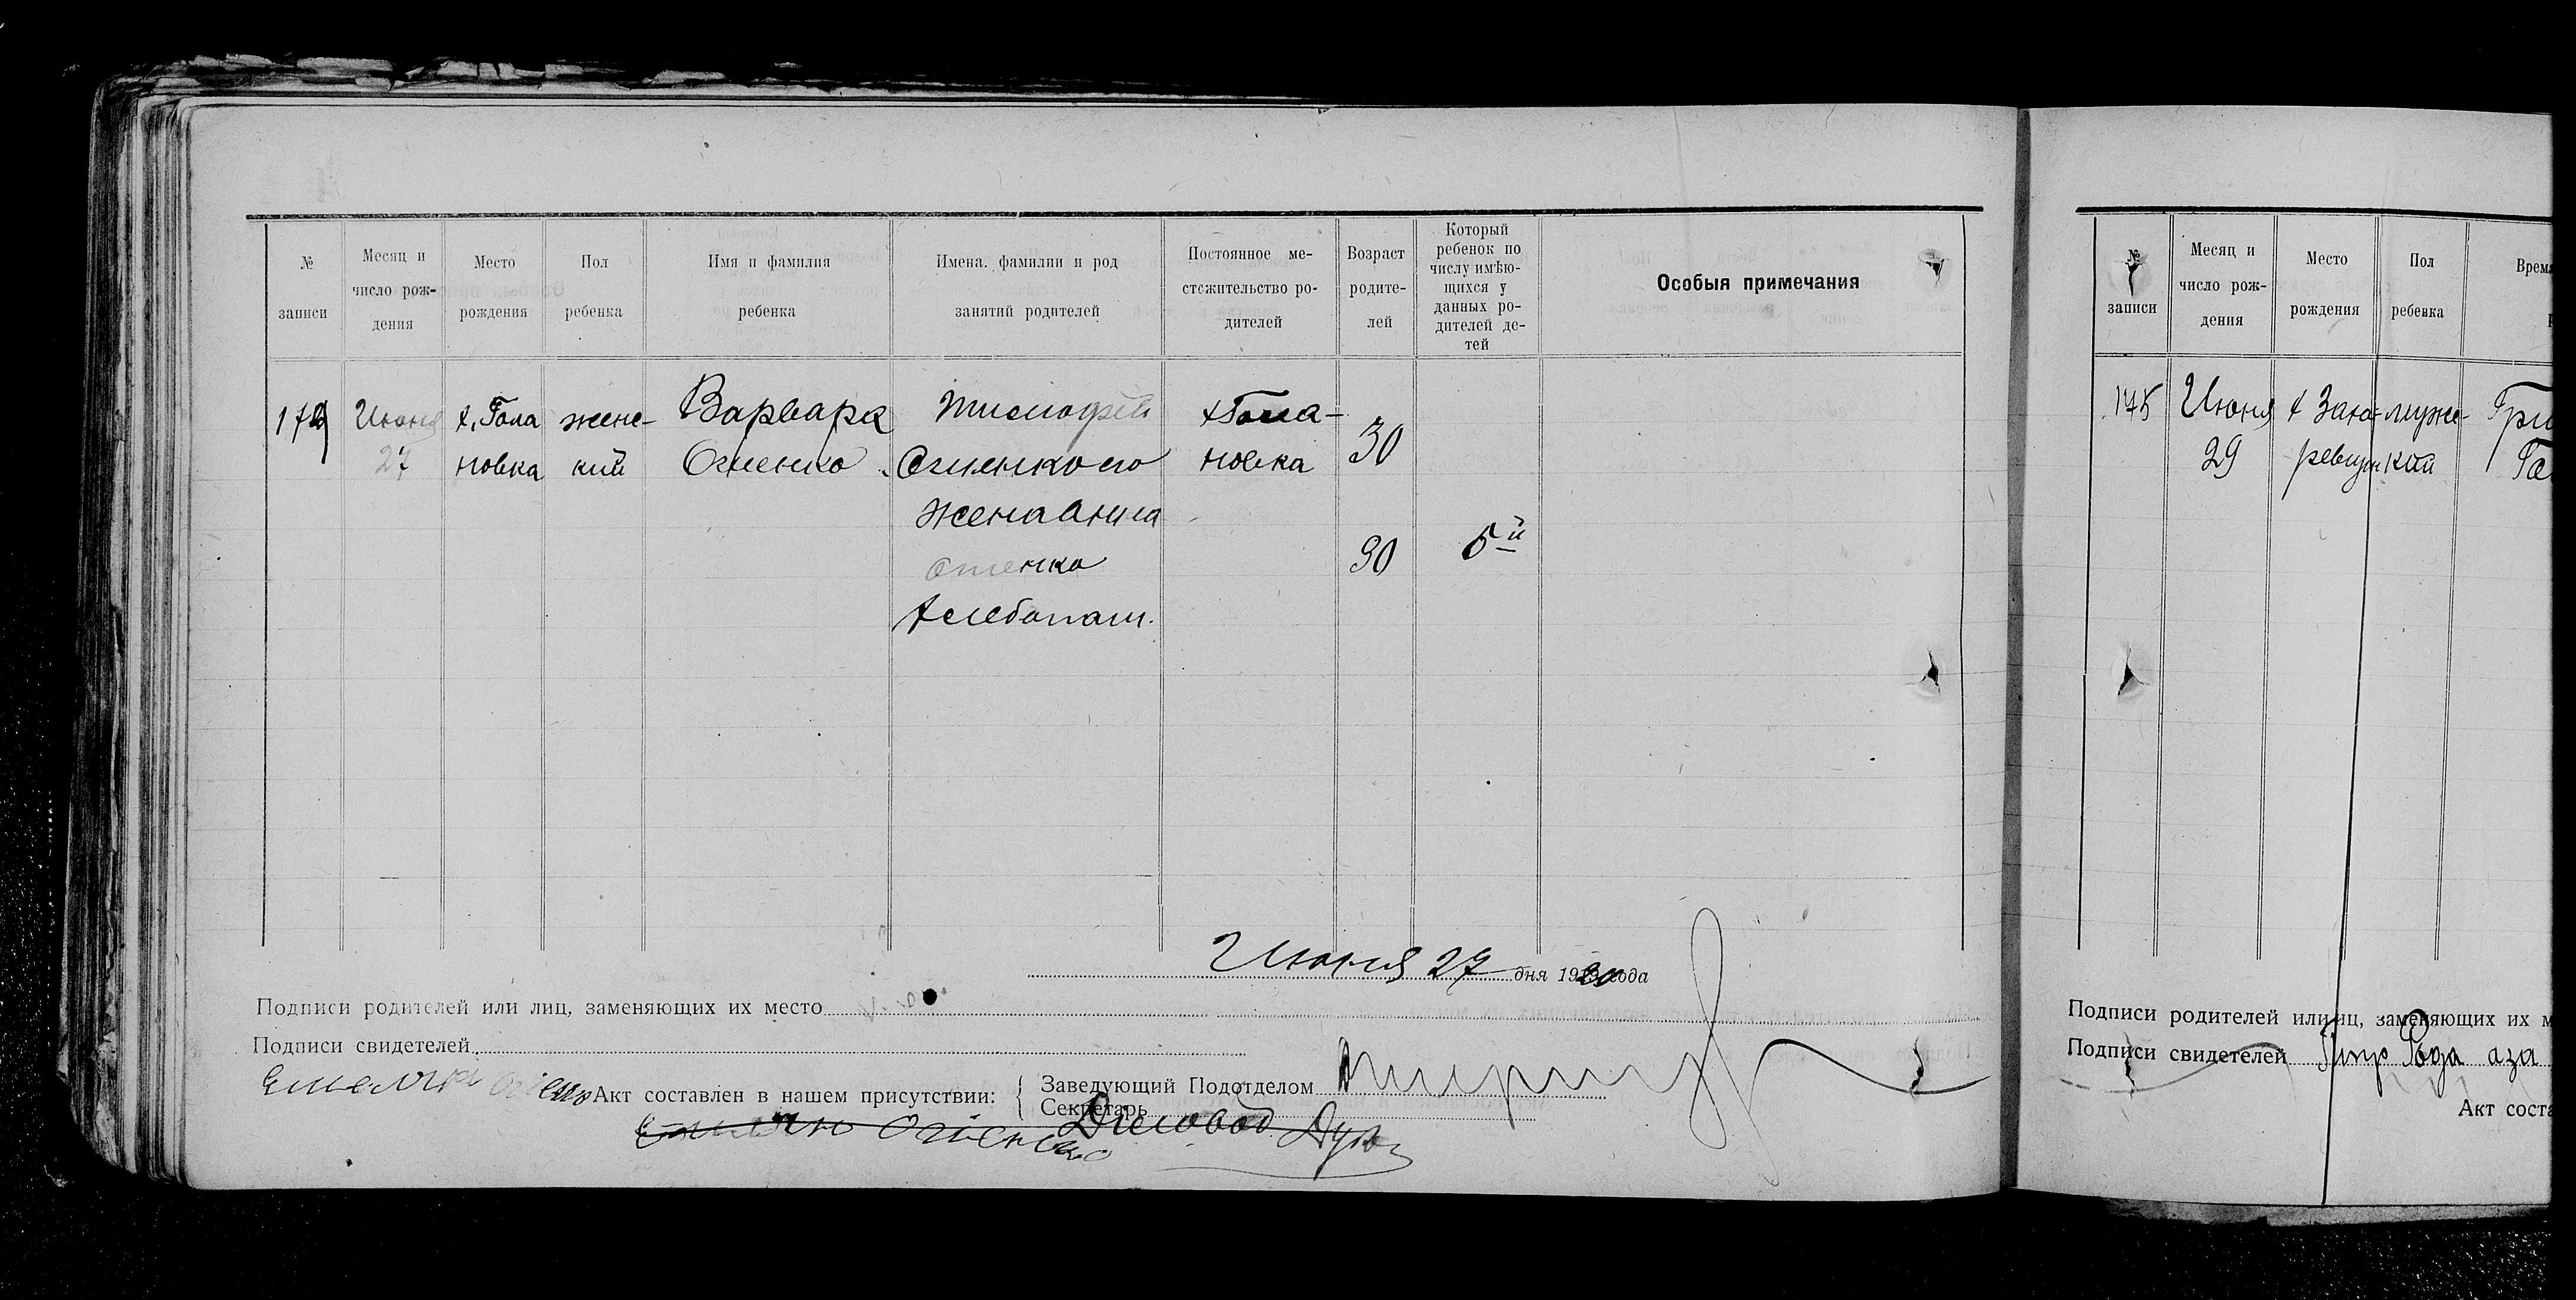 № записи
Месяц и число рож-дения
Место рождения
Пол ребенка
Имя и фамилия ребенка
Имена. фамилии и род занятий родителей
Постоянное ме-стожительство ро-дителей
Возраст родите-лей
Который ребенок по числу имѣю-щихся у данных ро-дителей де-тей
Особыя примечания
174
Июня 27
х. Гола новка
женс-кий
Варвара
Огиенко
Тимофей
Огиенко его
жена Анна
Огиенко
хлебопаш.
х Гола-новка
30
30
5й
Июня 27 дня 1920 года
Подписи родителей или лиц, заменяющих их место
Подписи свидетелей
Емельян Огиенко
Акт составлен в нашем присутствии:
Заведующий Подотделом
Секретарь
Деловод
Огиенко
№ записи
Месяц и число рож-дения
Место рождения
Пол ребенка
Врем
175
Июня 29
мужс-кий
Подписи родителей или лиц, заменяющих их м
Подписи свидетелей
Акт соста